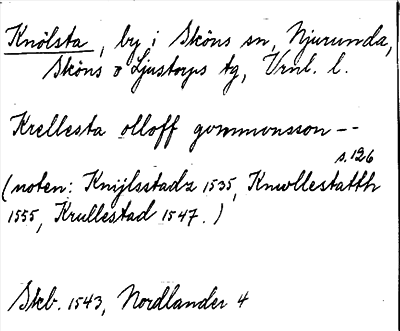 Knölsta, by i Sköns sn, Njurunda,
Sköns o Ljustorps tg, Vrnl. l.
Krellesta olloff gvmmvnsson --
s. 126
(noten: Knijlsstadz 1535, Knwllestatth
1555, Krullestad 1547.)
Skb. 1543, Nordlander 4